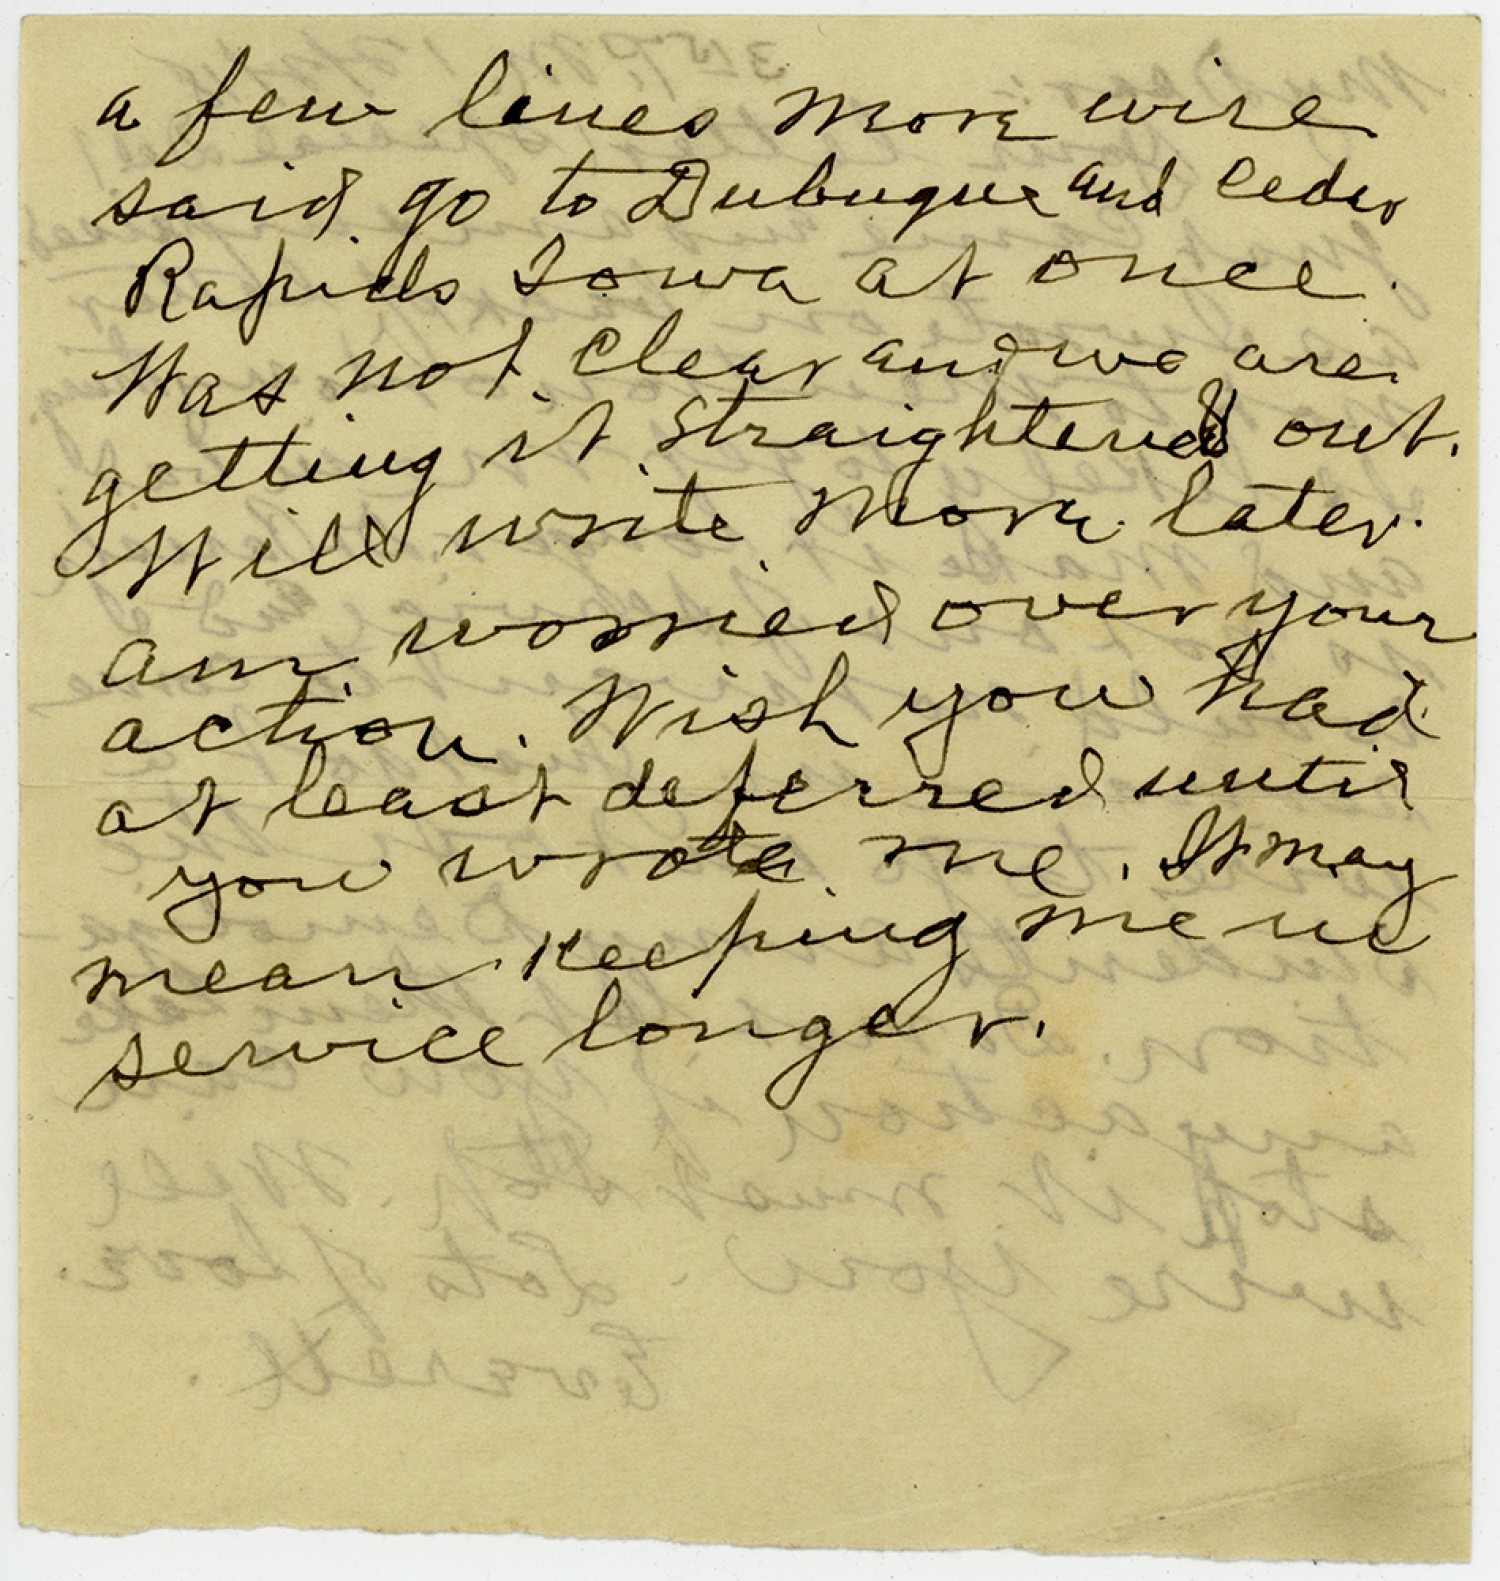 a few lines more wire
said go to Dubuque and Ceder
Rapids Iowa at once.
Was not clear and we are
getting it straightened out.
Will write more later.
am worried over your
action. Wish you had
at least deferred until
you wrote me. It may
mean keeping me in
service longer.